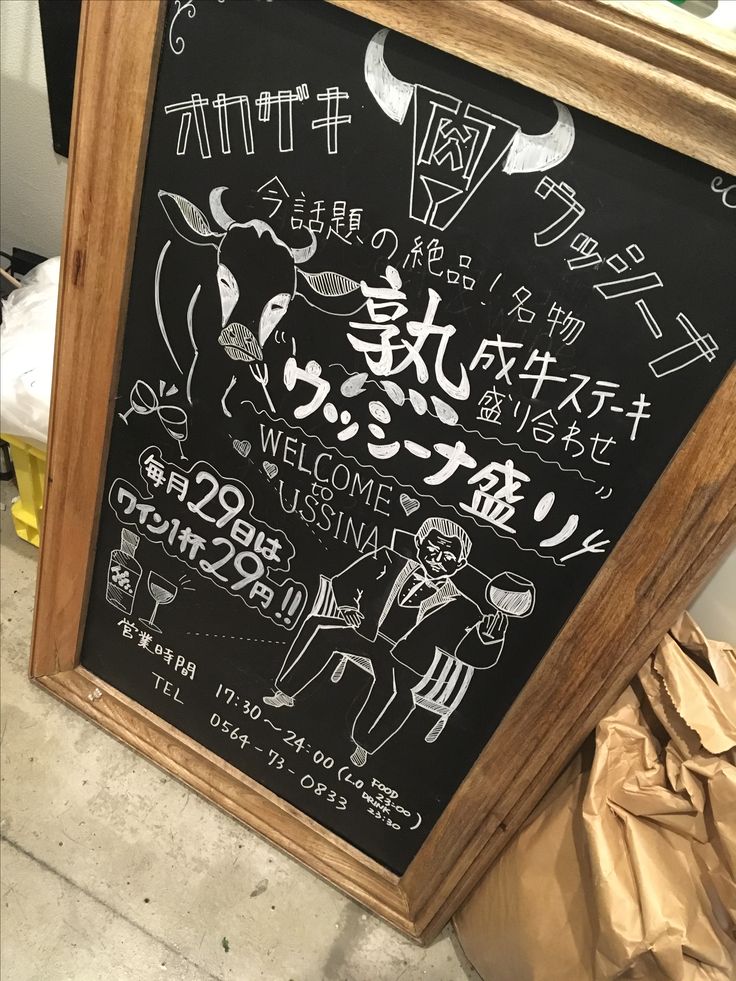 オカザキ
肉
ウッシーナ
今話題の絶品！名物
熟成牛ステーキ
盛り合わせ
ウッシーナ盛り
WELCOME
to
USSINA
毎月29日は
ワイン1杯29円!!
営業時間 17:30〜24:00 (L.O FOOD 23:00 DRINK 23:30)
TEL 0564-73-0833